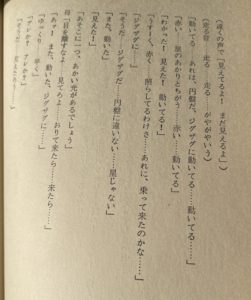 （遠くの声で「見えてるよ！　まだ見えてるよ」）
（走る音　走る……走る……がやがやいう）
「動いてる……あれは　円盤だ、ジグザグに動いてる……動いてる……」
「赤い、星のあかりとちがう……赤い……動いてる」
「わかった！　見えた！　動いてる！」
「うすーく、赤く　照らしてるわけさ……あれに、乗って来たのかな……」
「ジグザグに……」
「そうだ……ジグザグだ……円盤に違いない……星じゃない」
「また、動いた」
「見えた！
「あそこに一つ、あかい光があるでしょう」
「目を離すなよ……見てろよ……おりて来たら……来たら……」
「あっ！　また、動いた、ジグザグに……」
「ゆっくり……早く」